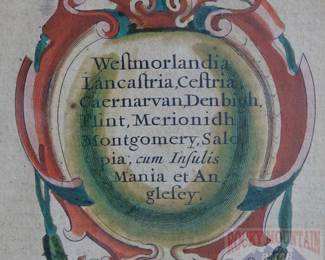 Weſtmorlandia
Lancaſtria, Ceſtria,
Caernarvan, Denbigh,
Flint, Merionidh
Montgomery, Salo
pia, cum Inſulis
Mania et An
gleſey.
ROCKY MOUNTAIN